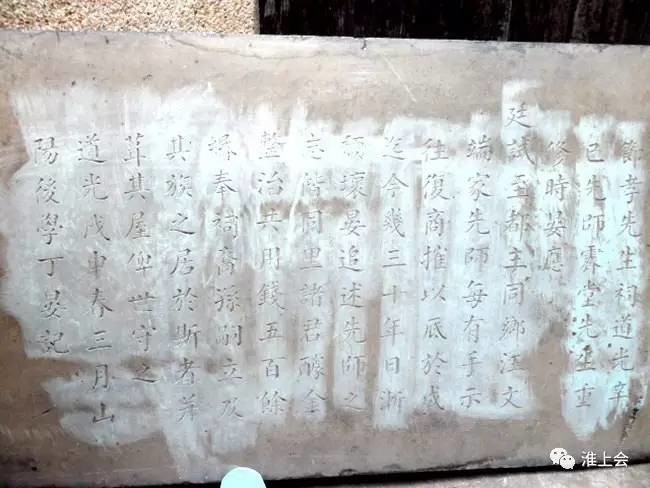 節孝先生祠道光辛
巳先師霽堂先生重
修時晏應
廷試至都主同鄉汪文
端家先師每有手示
往復商搉以底於成
迄今幾三十年日漸
頹壞晏追述先師之
志偕同里諸君醵金
整治共用錢五百餘
緡奉祠裔孫嗣立及
其族之居於斯者並
葺其屋俾世守之
道光戊申春三月山
陽後學丁晏記
淮上会